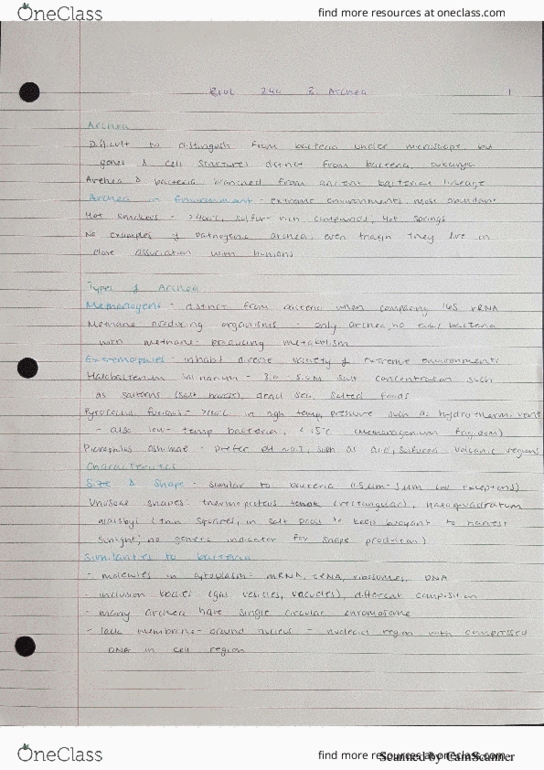 OneClass find more resources at oneclass.com
BIOL 240 3. Archea 1
Archea
Difficult to distinguish from bacteria under microscope, but
genes & cell structures distinct from bacteria, eukarya
Archea & bacteria branched from ancient bacterial lineage
Archea in Environment - extreme environments most abundant
Hot smokers - sulfur-rich compounds, hot springs
No examples of pathogenic archea, even though they live in
close association with humans
Types of Archea
Methanogens - distinct from bacteria when comparing 16S rRNA
Methane producing organisms - only archea, no bacteria
with methane-producing metabolism
Extremophiles - inhabit diverse variety of extreme environments
Halobacterium salinarum - salt concentration such
as salterns (salt ), dead sea, salted foods
in high temp, pressure such as hydrotherm. vents
- also low-temp bacteria, <15°C
Picrophilus - prefer pH such as acid, volcanic regions
Characteristics
Size & Shape - similar to bacteria
Unusual shapes - thermoproteus (rectangular), haloquadratum
(thin squares, in salt to keep buoyant to harvest
sunlight, no genetic indicator for shape prediction)
Similarities to bacteria
- molecules in cytoplasm - mRNA, ribosomes, DNA
- inclusion bodies (gas vesicles, vacuoles), different composition
- many archea have single circular chromosome
- lack membrane-around nucleus - nucleoid region with compressed
DNA in cell region
OneClass find more resources at oneclass.com
Scanned by CamScanner